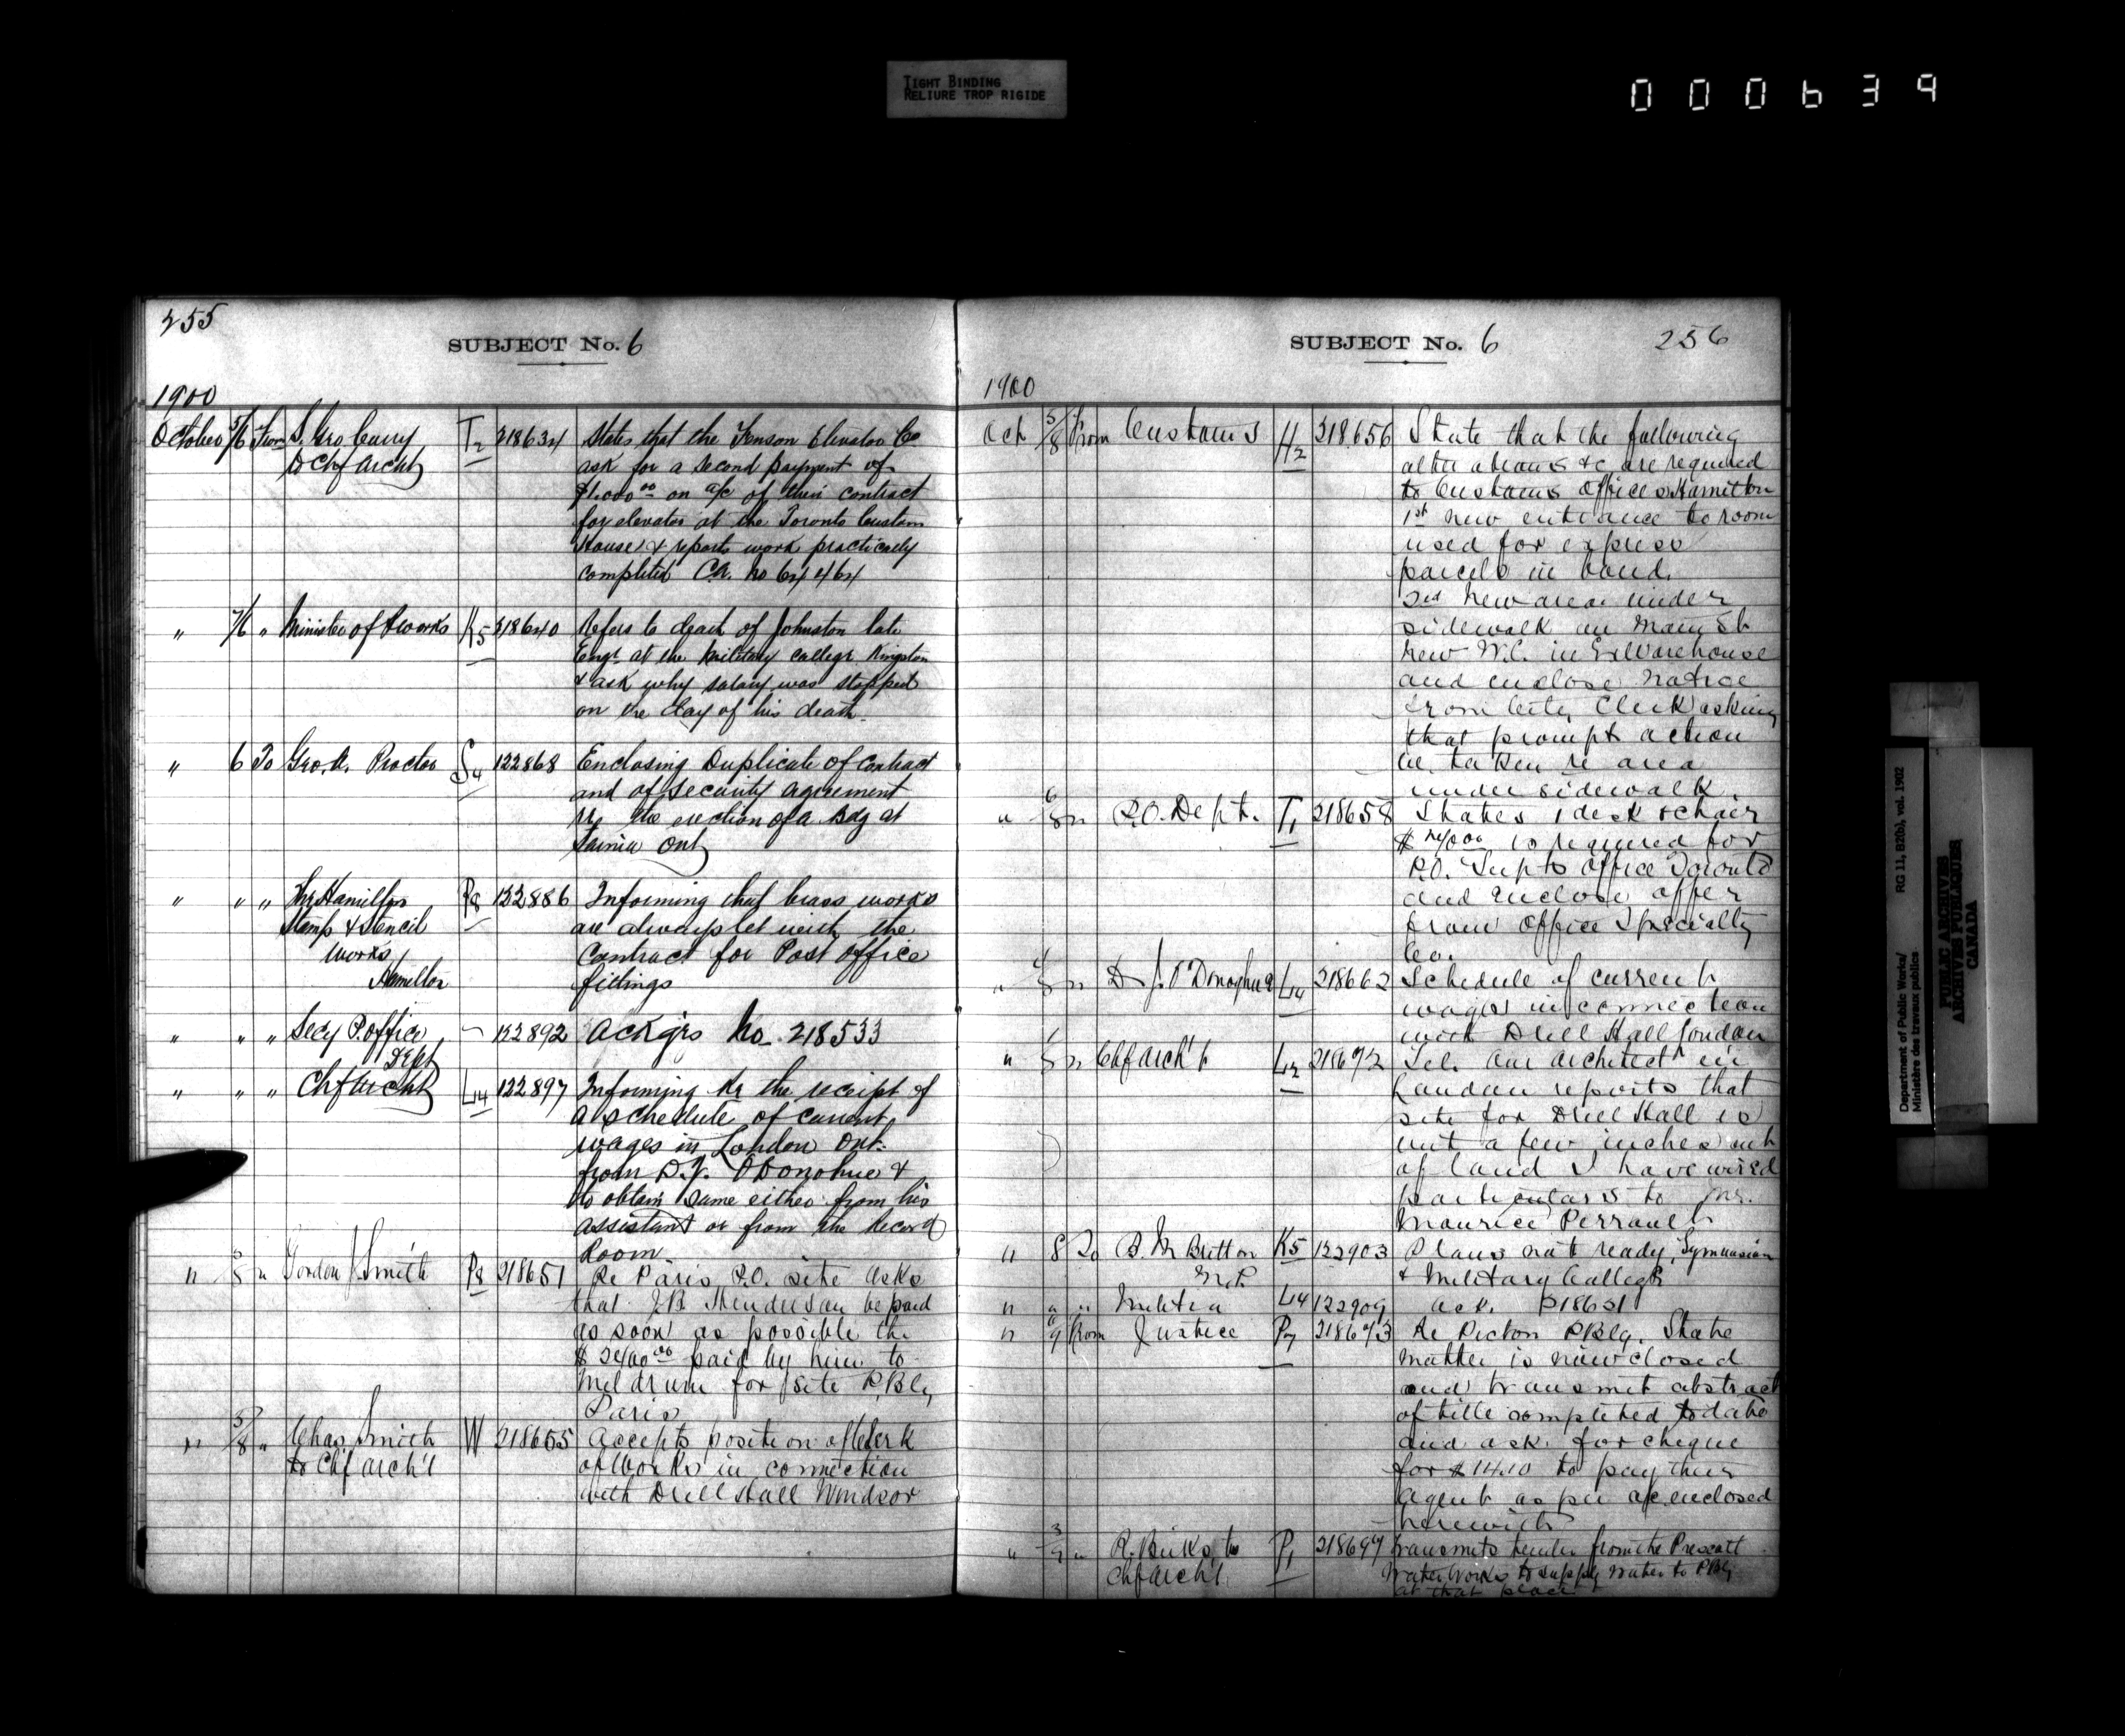 TIGHT BINDING
RELIURE TROP RIGIDE
000639
255
SUBJECT No. 6
1900
October 5/6 From S. Geo Curry T2 218634 States that the Fenson Elevator Co
to Chf Archt ask for a second payment of
$1.000 00 on a/c of their contract
for elevator at the Toronto Custom
House & reports work practically
completed C.A. no 64464
" 7/6 " Minister of P works K5 218640 Refers to death of Johnston late
Engr at the Military College Kingston
& ask why salary was stopped
on the day of his death
" 6 To Geo. K. Proctor S4 122868 Enclosing Duplicate of Contract
and of security agreement
re the erection of a Bdg at
Sarnia Ont
" " " The Hamilton P8 122886 Informing that brass works
Stamp & Stencil are always let with the
Works Contract for Post office
Hamilton fittings
" " " Secy P. office 122892 Ackgs No 218533
Dept
" " " Chf Archt L14 122897 Informing re the receipt of
a schedule of current
wages in London Ont.
from D.J. O'Donohue &
to obtain same either from his
assistant or from the Record
Room
" 5/8 " Gordon J. Smith P8 218651 Re Paris P.O. site asks
that J.B. Henderson be paid
as soon as possible the
$2400 00 paid by him to
Meldrum for site P.Blg
Paris
" 5/8 " Chas Smith W 218655 Accepts position of Clerk
to Chf Arch't of Works in connection
with Drill Hall Windsor
SUBJECT No. 6 256
1900
Oct 5/8 From Customs H2 218656 State that the following
alterations &c are required
to Customs Offices Hamilton
1st new entrance to room
used for express
parcels in bond.
2nd New area under
sidewalk on Main St
New W.C. in Ex Warehouse
and enclose notice
from City Clerk asking
that prompt action
be taken re area
under sidewalk.
" 6/8 " P.O. Dept. T1 218658 States 1 desk & chair
is required for
P.O. Supts Office Toronto
and enclose offer
from Office Specialty
Co.
" 4/8 " D J. O'Donoghue L14 218662 Schedule of current
wages in connection
with Drill Hall London
" 6/8 " Chf Arch't 218672 Tel. Our architect in
London reports that
site for Drill Hall is
of land I have wired
particulars to Mr.
Maurice Perrault
" 8 To B. M Britton K5 122903 Plans not ready, Gymnasium
M.P. & Military College
" " " Militia L14 122909 ack. 218631
" 9 From Justice P7 218673 Re Picton P.Blg. State
matter is now closed
and transmit abstract
of title completed to date
and ask for cheque
for $14.10 to pay their
agent as per a/c enclosed
herewith
" 3/9 " R. Birks to P1 218694 Transmits tender from the Prescott
Chf Arch't Water Works to supply water to P.Blg
at that place
Department of Public Works/ RG 11, B2(b), vol. 1902
Ministère des travaux publics
PUBLIC ARCHIVES
ARCHIVES PUBLIQUES
CANADA